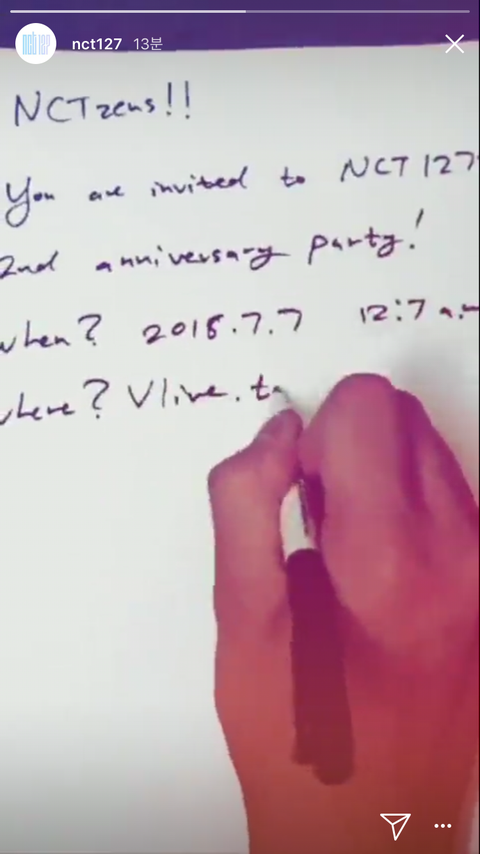 nct 127
nct127 13분
NCTzens!!
You are invited to NCT 127
2nd anniversary party!
when? 2018.7.7 12:7 a.m
where? Vlive.t